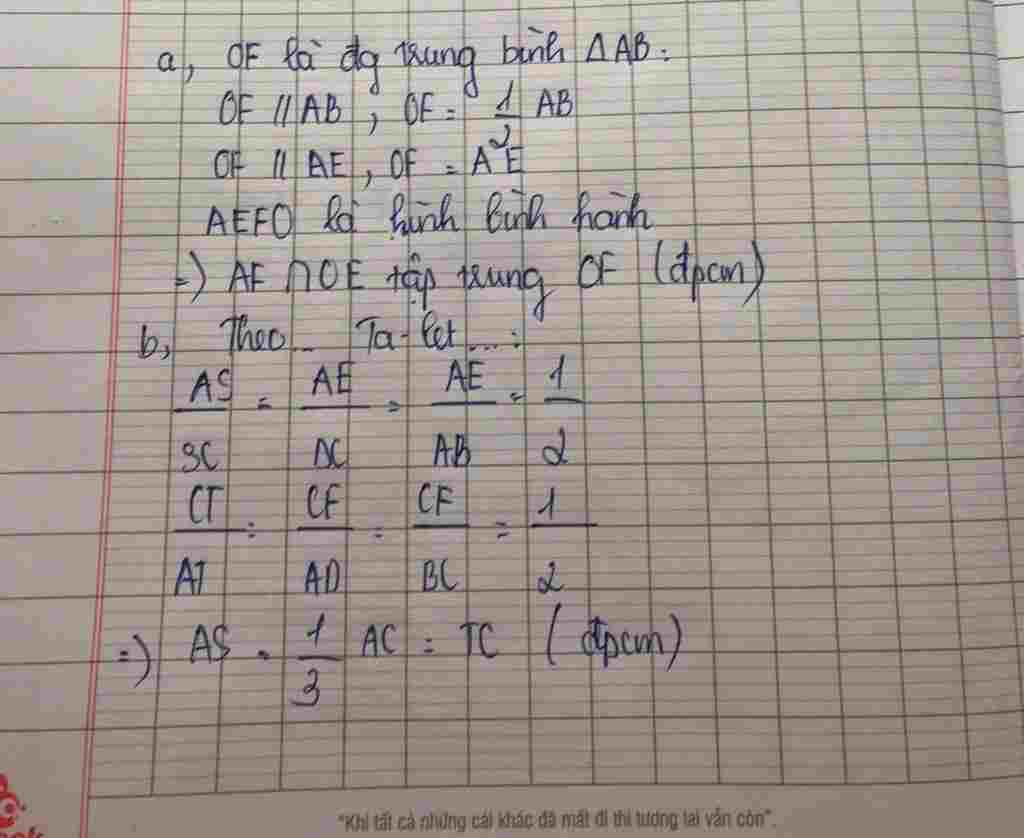 a, OF là đg trung bình ΔAB:
OF // AB, OF = 1/2 AB
OF // AE, OF = AE
AEFO là hình bình hành
=) AF ∩ OE tập trung OF (đpcm)
b, Theo... Ta-let...:
AS/SC = AE/DC = AE/AB = 1/2
CT/AT = CF/AD = CF/BC = 1/2
=) AS = 1/3 AC = TC (đpcm)
"Khi tất cả những cái khác đã mất đi thì tương lai vẫn còn".